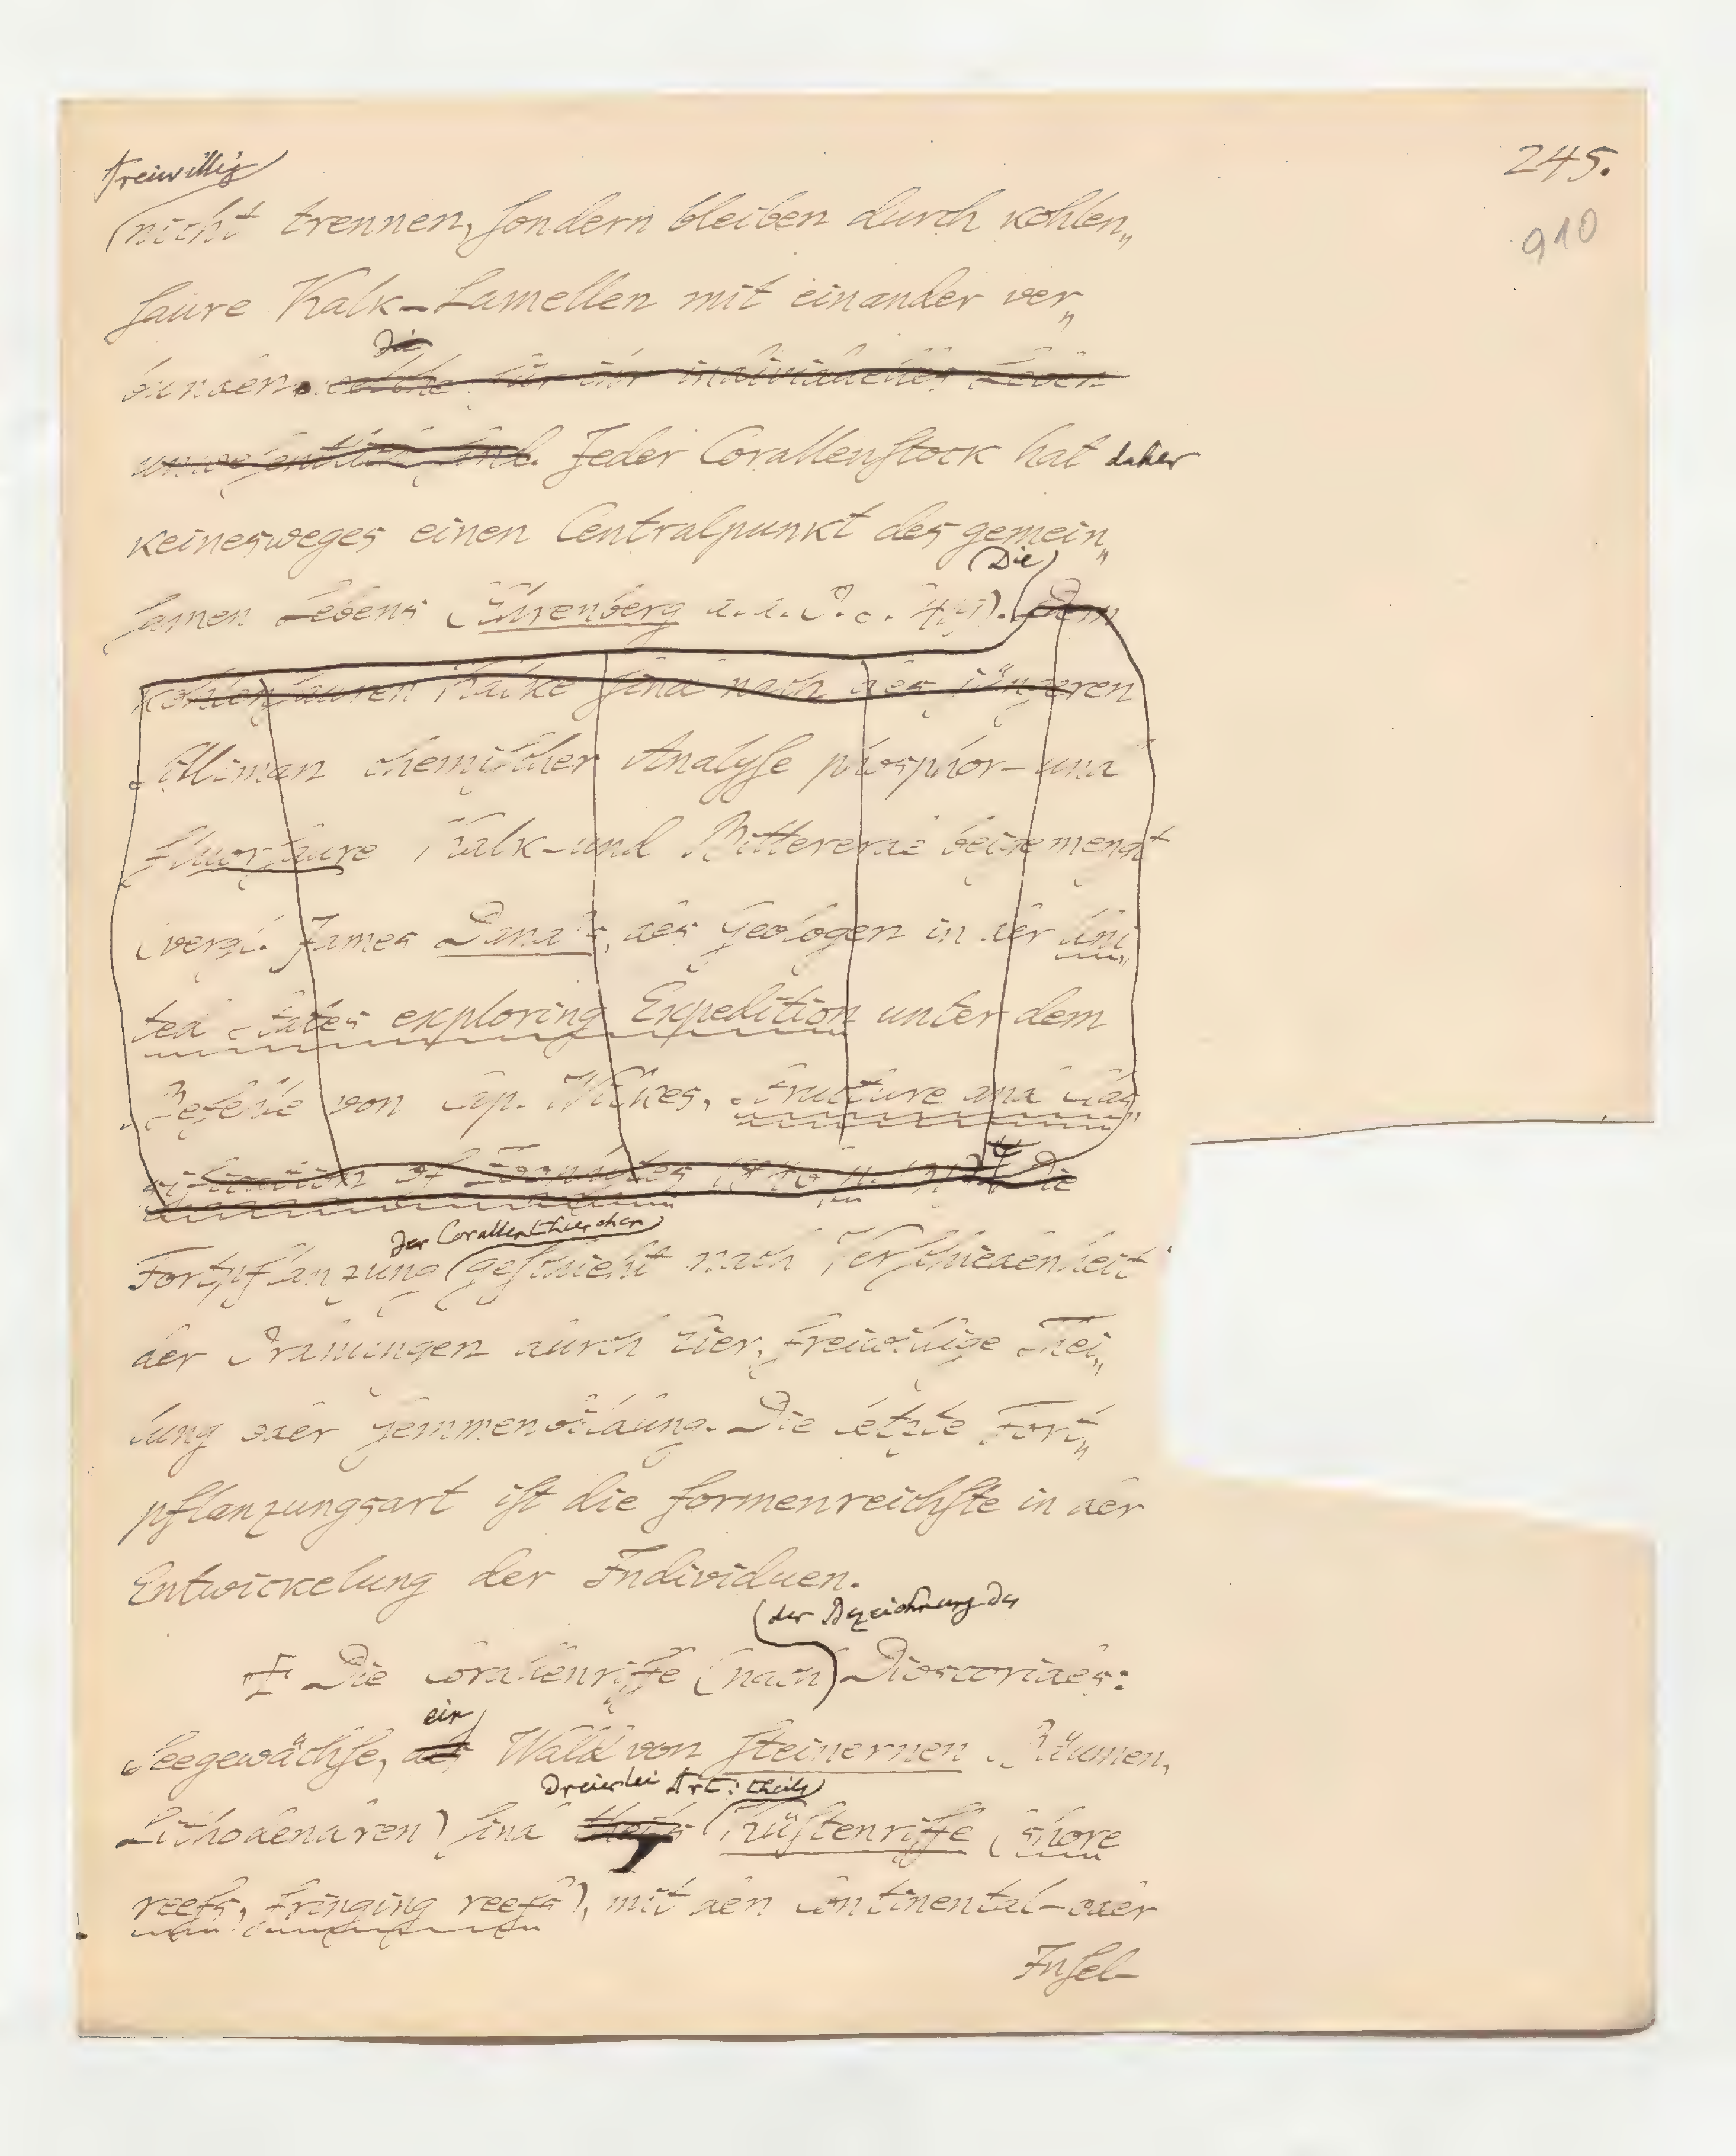 freiwillig
245.
910
nicht trennen, sondern bleiben durch kohlen„
saure Kalk-Lamellen mit einander ver„
die
bunden. welche für ihr individuelles Leben
unwesentlich sind. Jeder Corallenstock hat daher
keinesweges einen Centralpunkt des gemein„
(Die)
samen Lebens (Ehrenberg a. a. O. S. 419). Dem
kohlensauren Kalke sind nach des jüngeren
Silliman chemischer Analyse phosphor- und
fluorsaure Kalk- und Bittererde beigemengt
(vergl. James Dana's, des Geologen in der Uni„
ted States exploring Expedition unter dem
Befehle von Cap. Wilkes, Structure and Clas„
sification of Zoophytes 1846 Die
der Corallenthierchen
Fortpflanzung geschieht nach Verschiedenheit
der Ordnungen durch Eier, freiwillige Thei„
lung oder Gemmenbildung. Die letzte Fort„
pflanzungsart ist die formenreichste in der
Entwickelung der Individuen.
(der Bezeichnung des
Die Corallenriffe (nach) Dioscorides:
ein
Seegewächse, der Wald von steinernen Bäumen,
dreierlei Art: theils
Lithodendren) sind theils Küstenriffe (shore
reefs, fringing reefs), mit den Continental- oder
Insel-